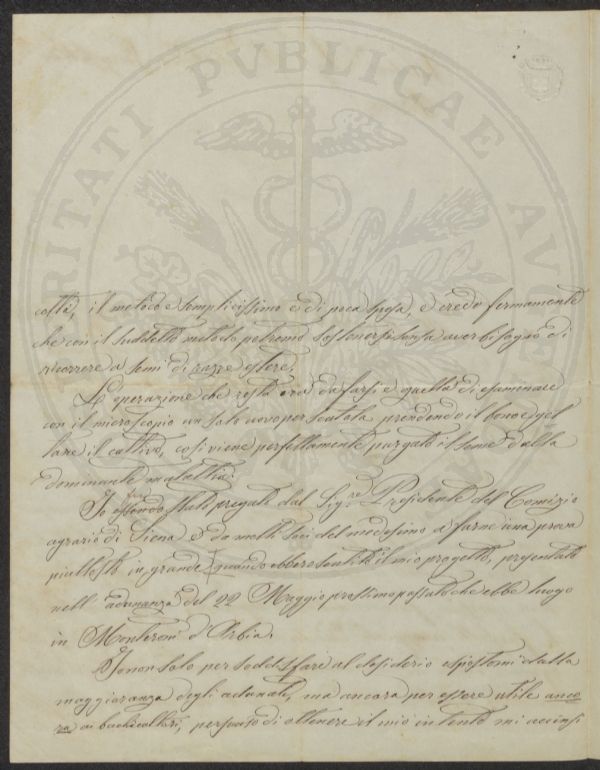 VERITATI PVBLICAE
coltà, il metodo è semplicissimo e di poca spesa, e credo fermamente
che con il suddetto metodo potremo sostenersi senza aver bisogno di
ricorrere a semi di razze estere.
L'operazione che resta ora da farsi è quella di esaminare
con il microscopio un solo uovo per scatola prendendo il buono e get
tare il cattivo, così viene perfettamente purgato il seme dalla
dominante malattia.
Io essendo stato pregato dal Sigre Presidente del Comizio
agrario di Siena e da molti soci del medesimo a farne una prova
piuttosto in grande quando ebbero sentito il mio progetto, presentato
nell'adunanza del 22 Maggio prossimo passato che ebbe luogo
in Monteroni d'Arbia.
Io non solo per soddisfare al desiderio espostomi dalla
maggioranza degli adunati, ma ancora per essere utile anco
ra ai bachicultori, persuaso di ottenere il mio intento mi accinsi